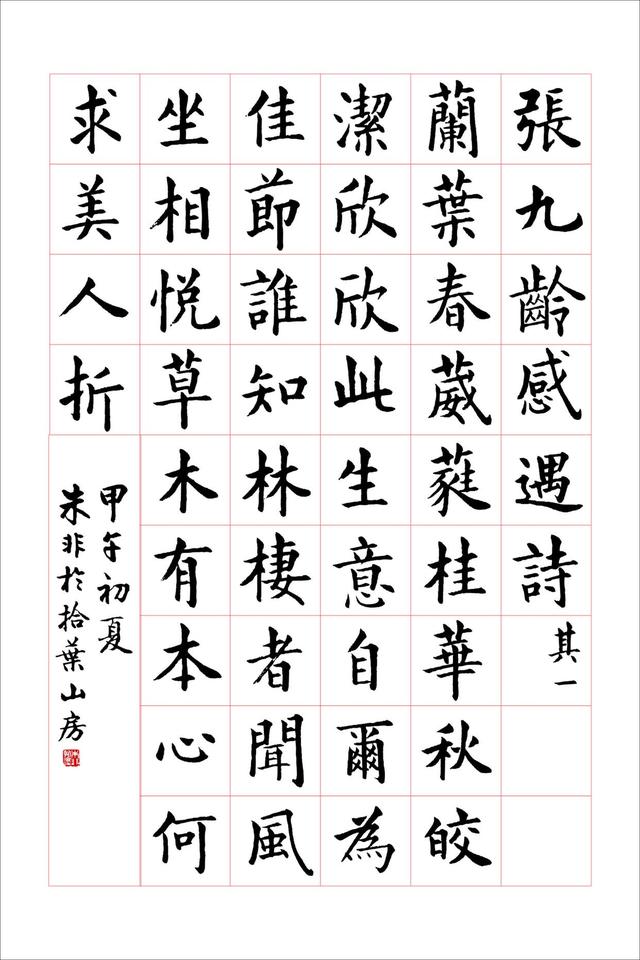 張九齡感遇詩其一
蘭葉春葳蕤桂華秋皎
潔欣欣此生意自爾為
佳節誰知林棲者聞風
坐相悅草木有本心何
求美人折
甲午初夏
朱非於拾葉山房